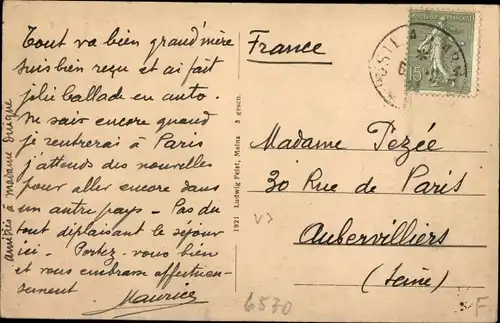 Tout va bien grand'mère
suis bien reçu et ai fait
jolie ballade en auto.
Ne sais encore quand
je rentrerai à Paris
j'attends des nouvelles
pour aller encore dans
un autre pays - Pas du
tout déplaisant le séjour
ici - Portez-vous bien
et vous embrasse affectueu-
sement
Maurice
amitiés à madame
1921 Ludwig Feist, Mainz 3 gesch.
France
RÉPUBLIQUE FRANÇAISE
15
Madame Pezée
30 Rue de Paris
V7
Aubervilliers
(Seine)
6570
F